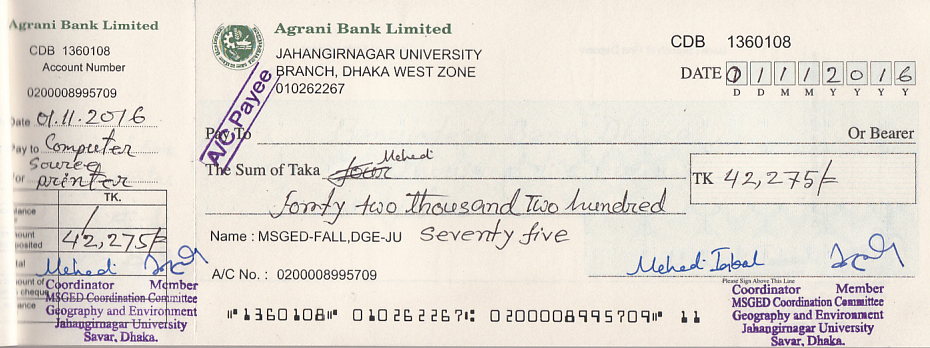 Agrani Bank Limited
CDB 1360108
Account Number
0200008995709
Date 01.11.2016
Pay to Computer
Source
For printer
TK.
42,275/=
Mehedi
Coordinator Member
MSGED Coordination Committee
Geography and Environment
Jahangirnagar University
Savar, Dhaka.
Agrani Bank Limited
JAHANGIRNAGAR UNIVERSITY
BRANCH, DHAKA WEST ZONE
010262267
A/C Payee
CDB 1360108
DATE 01112016
D D M M Y Y Y Y
Pay To Or Bearer
Mehedi
The Sum of Taka four
TK 42,275/=
fornty two thousand Two hundred
Name : MSGED-FALL,DGE-JU seventy five
A/C No. : 0200008995709
Mehedi Iqbal
Please Sign Above This Line
Coordinator Member
MSGED Coordination Committee
Geography and Environment
Jahangirnagar University
Savar, Dhaka.
⑈1360108⑈ 010262267⑆ 0200008995709⑈ 11